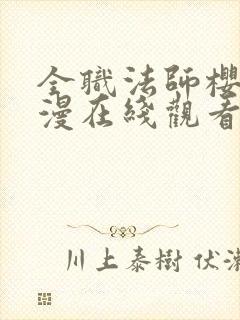 全職法師櫻
漫在綫觀看
川上泰樹 伏瀬